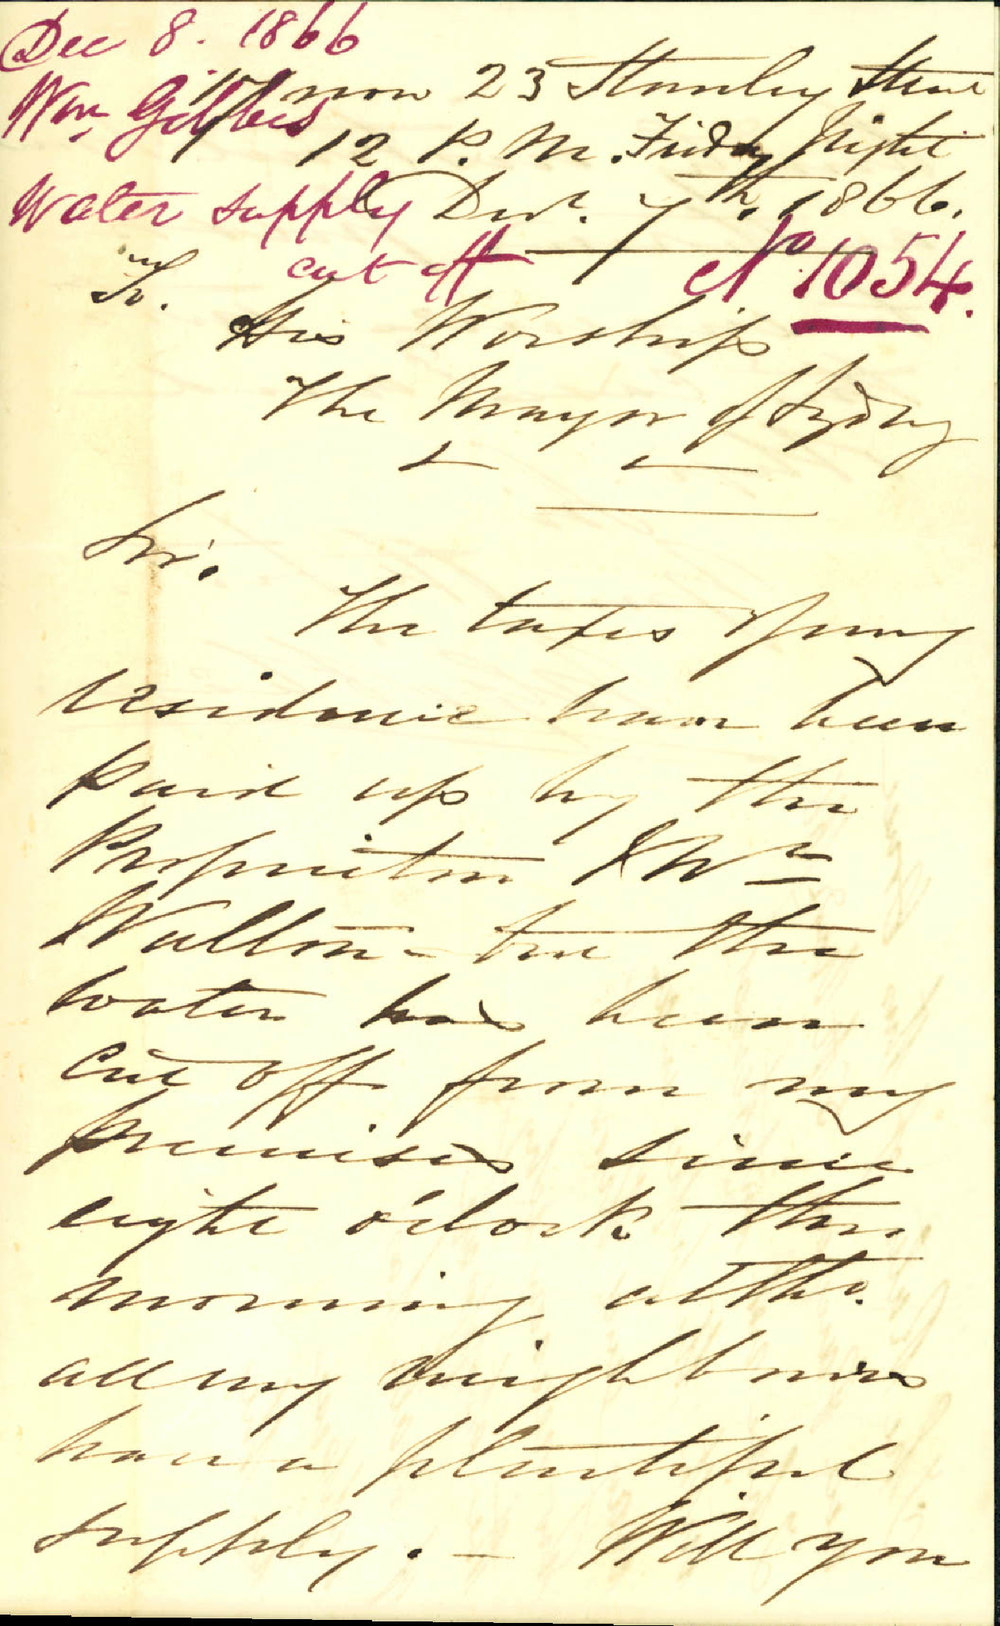 Dec 8. 1866
Wm Gibbes
Water supply
cut off
No 1054.
now 23 Stanley Street
12 P.M. Friday Night
Decr. 7th. 1866.
To.
His Worship
The Mayor of Sydney
Sir.
The taxes of my
residence have been
paid up by the
Proprietor Wm
Walton - but the
water has been
cut off from my
premises since
eight o'clock this
morning altho.
all my neighbours
have a plentiful
supply. - Will you